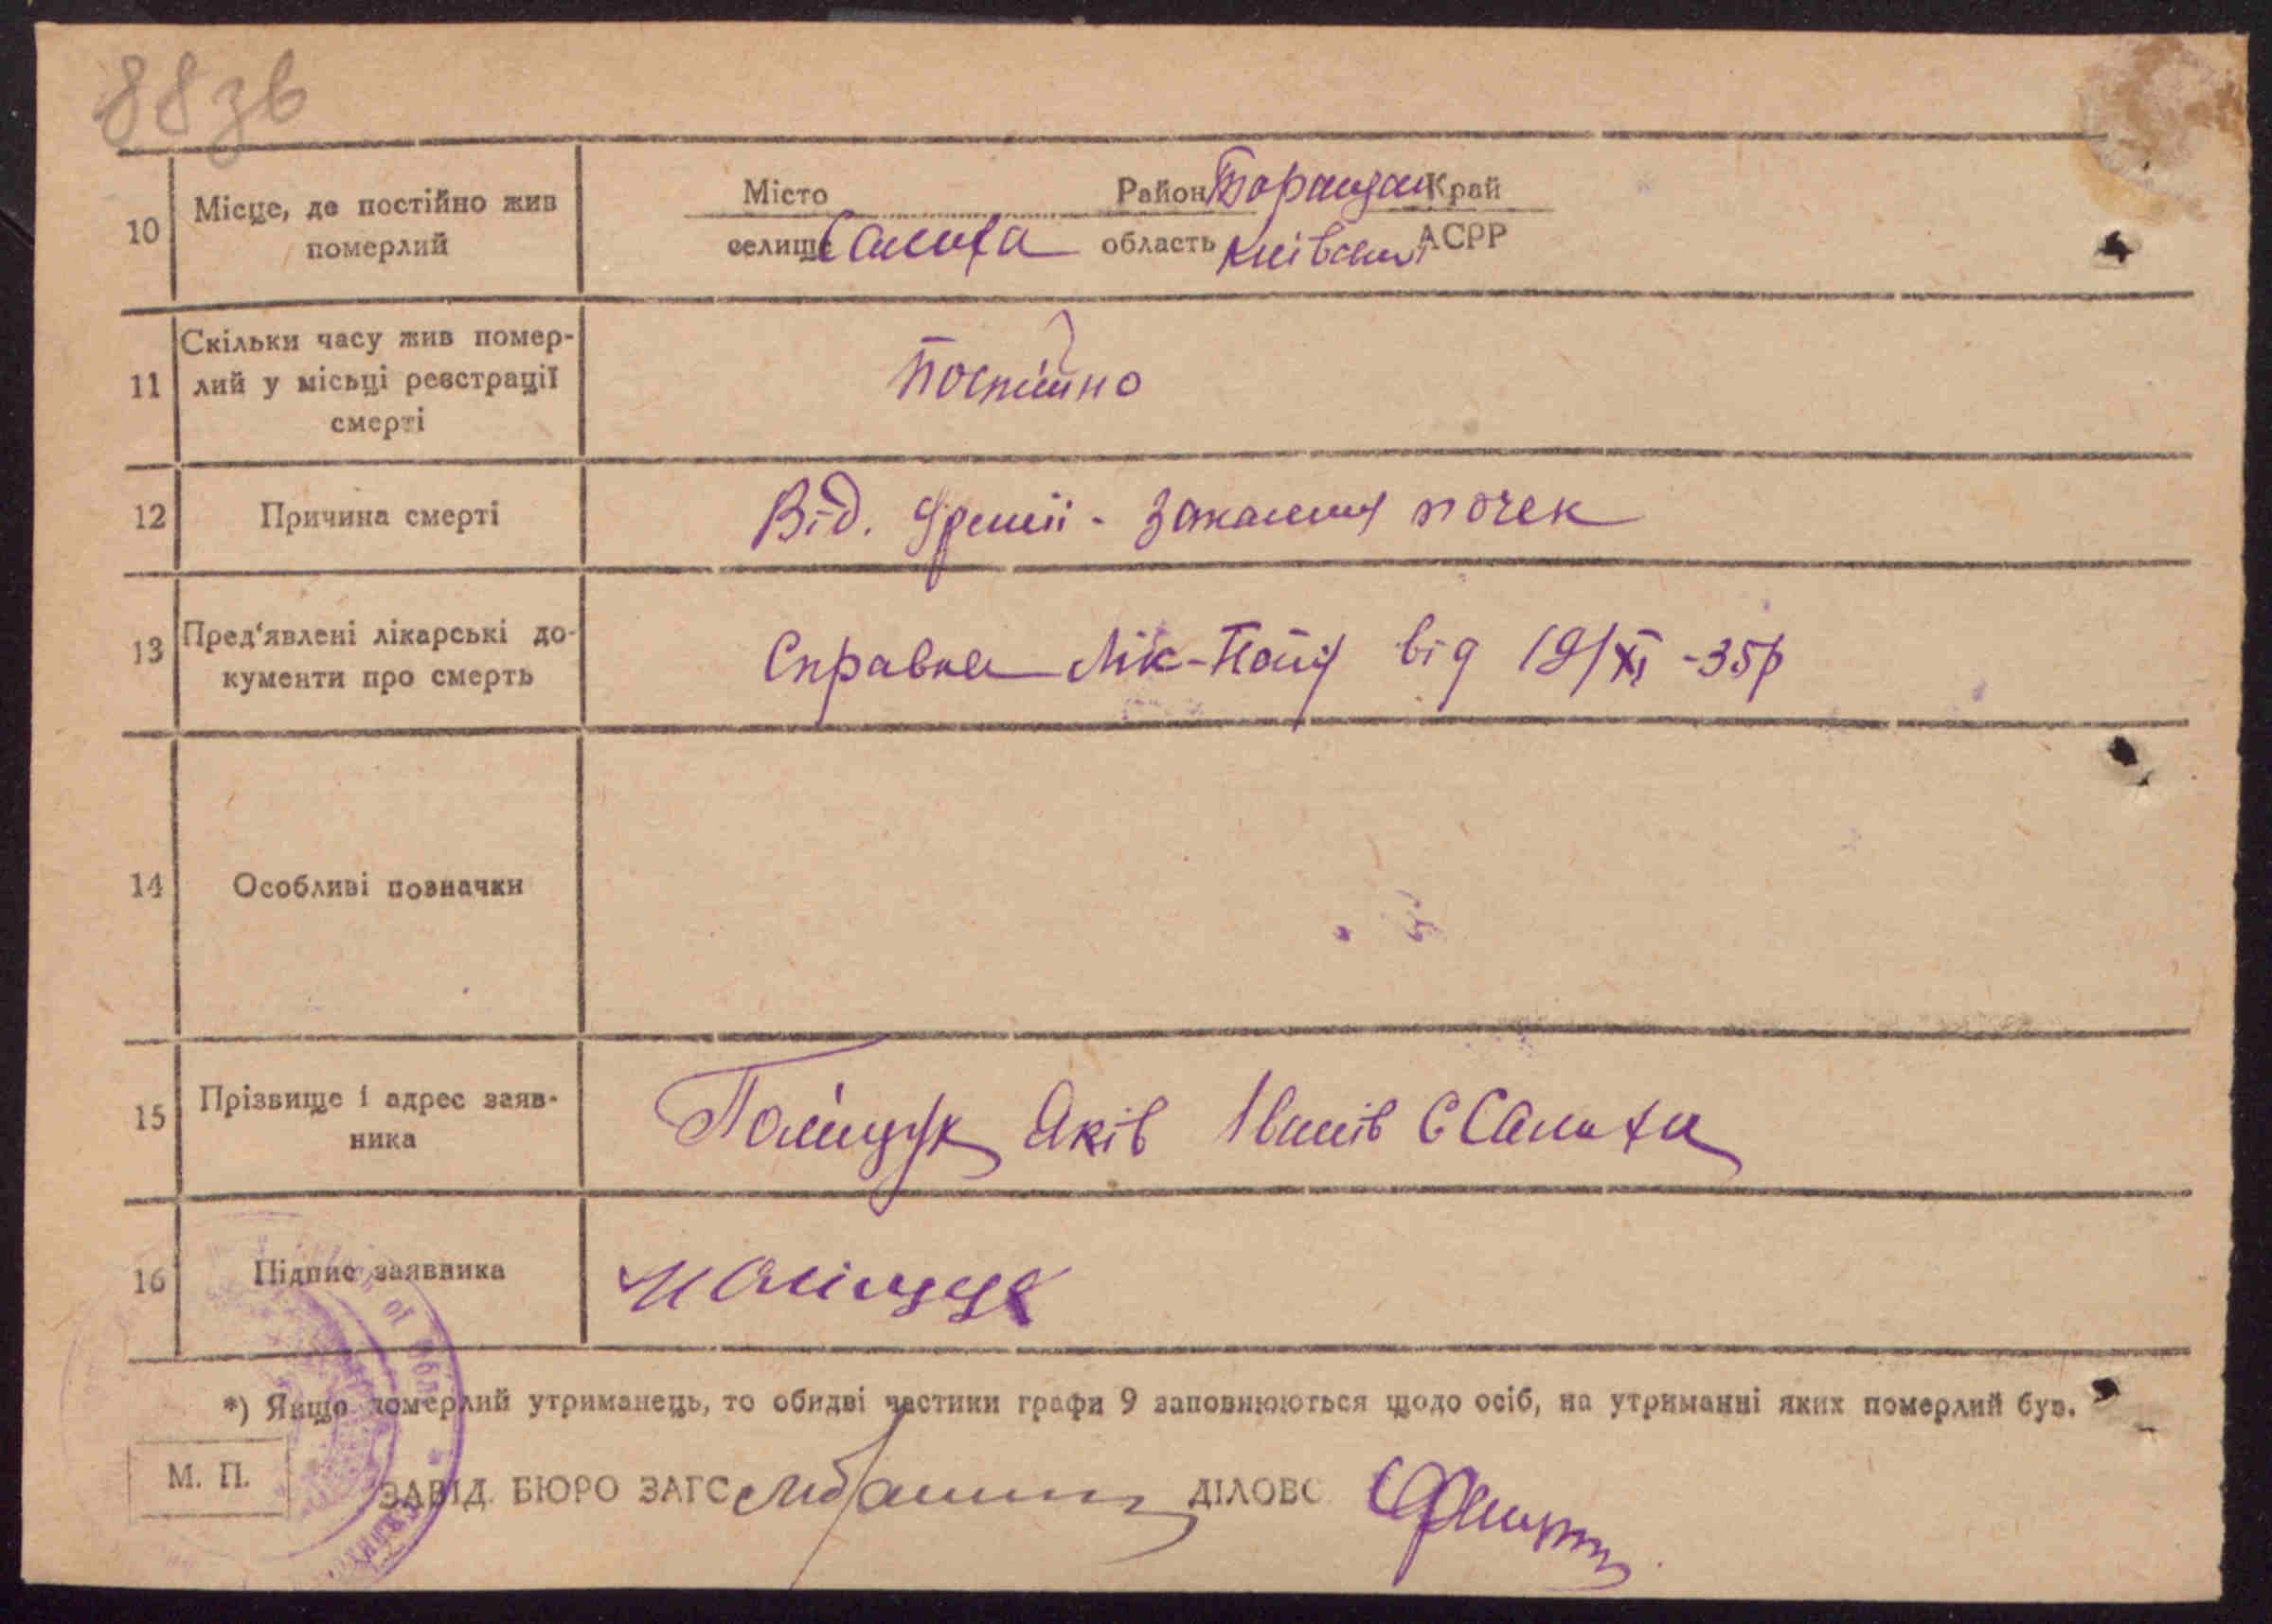 88зв
10 Місце, де постійно жив померлий
Місто Район Таращан Край
селище Салиха область Київська АСРР
11 Скільки часу жив помер-
лий у місьці реєстрації
смерті
Постійно
12 Причина смерті
Від. Уремії - Закалення почек
13 Пред'явлені лікарські до-
кументи про смерть
Справка Лік- від 19/XI -35р
14 Особливі позначки
15 Прізвище і адрес заяв-
ника
Поліщук Яків Іванів с Салиха
16 Підпис заявника
Поліщук
*) Якщо померлий утриманець, то обидві частини графи 9 заповнюються щодо осіб, на утриманні яких померлий був.
М. П.
ЗАВІД. БЮРО ЗАГС ДІЛОВС